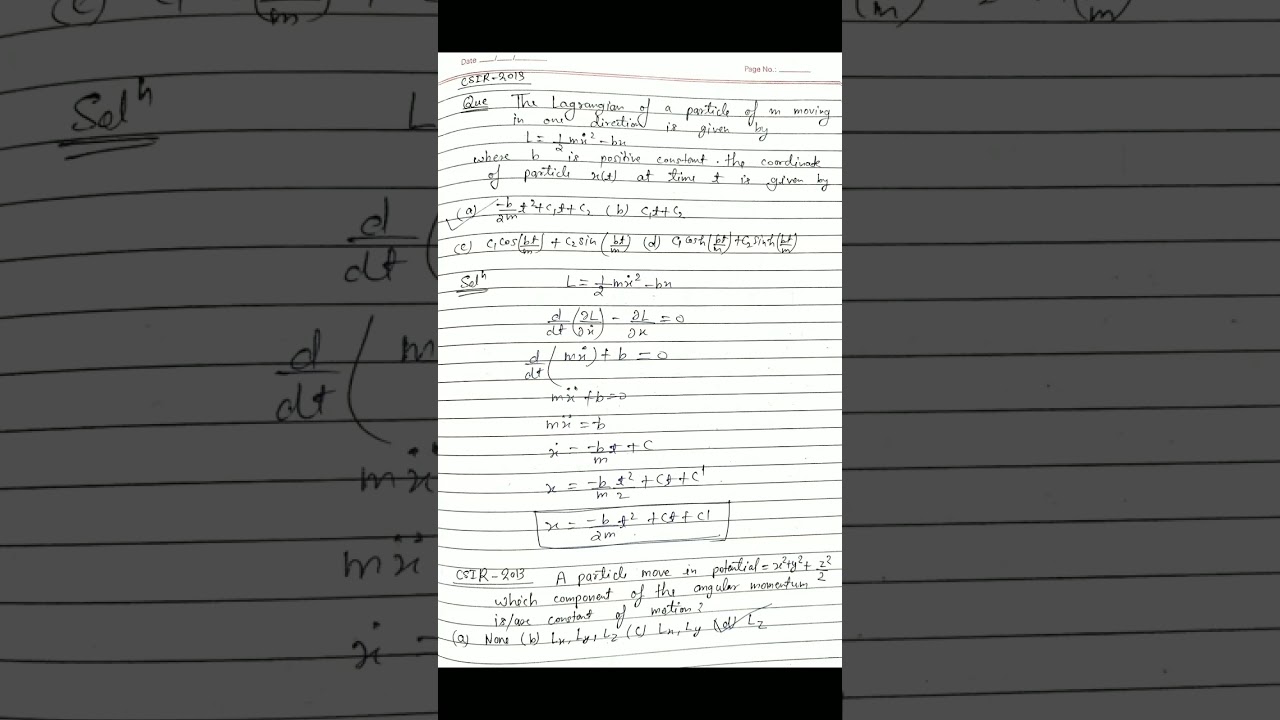 Date ___/___/______
Page No.: ______
CSIR-2013
Que The Lagrangian of a particle of m moving
in one direction is given by
L = 1/2 mẋ² - bx
where b is positive constant. the coordinate
of particle x(t) at time t is given by
(a) -b/2m t² + c₁t + c₂ (b) c₁t + c₂
(c) c₁cos(bt/m) + c₂sin(bt/m) (d) c₁cosh(bt/m) + c₂sinh(bt/m)
Solⁿ L = 1/2 mẋ² - bx
d/dt (∂L/∂ẋ) - ∂L/∂x = 0
d/dt (mẋ) + b = 0
mẍ + b = 0
mẍ = -b
ẋ = -b/m t + C
x = -b/m t²/2 + Ct + C'
x = -b/2m t² + Ct + C'
CSIR-2013 A particle move in potential = x²+y²+z²/2
which component of the angular momentum
is/are constant of motion?
(a) None (b) Lx, Ly, Lz (c) Lx, Ly (d) Lz